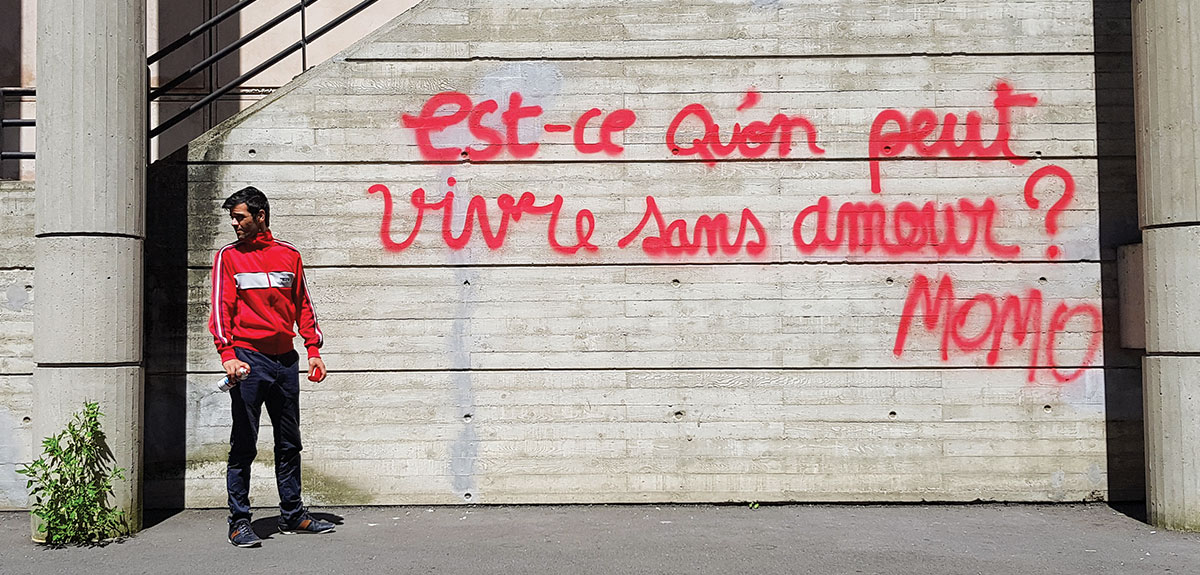 est-ce qu'on peut
vivre sans amour ?
MOMO